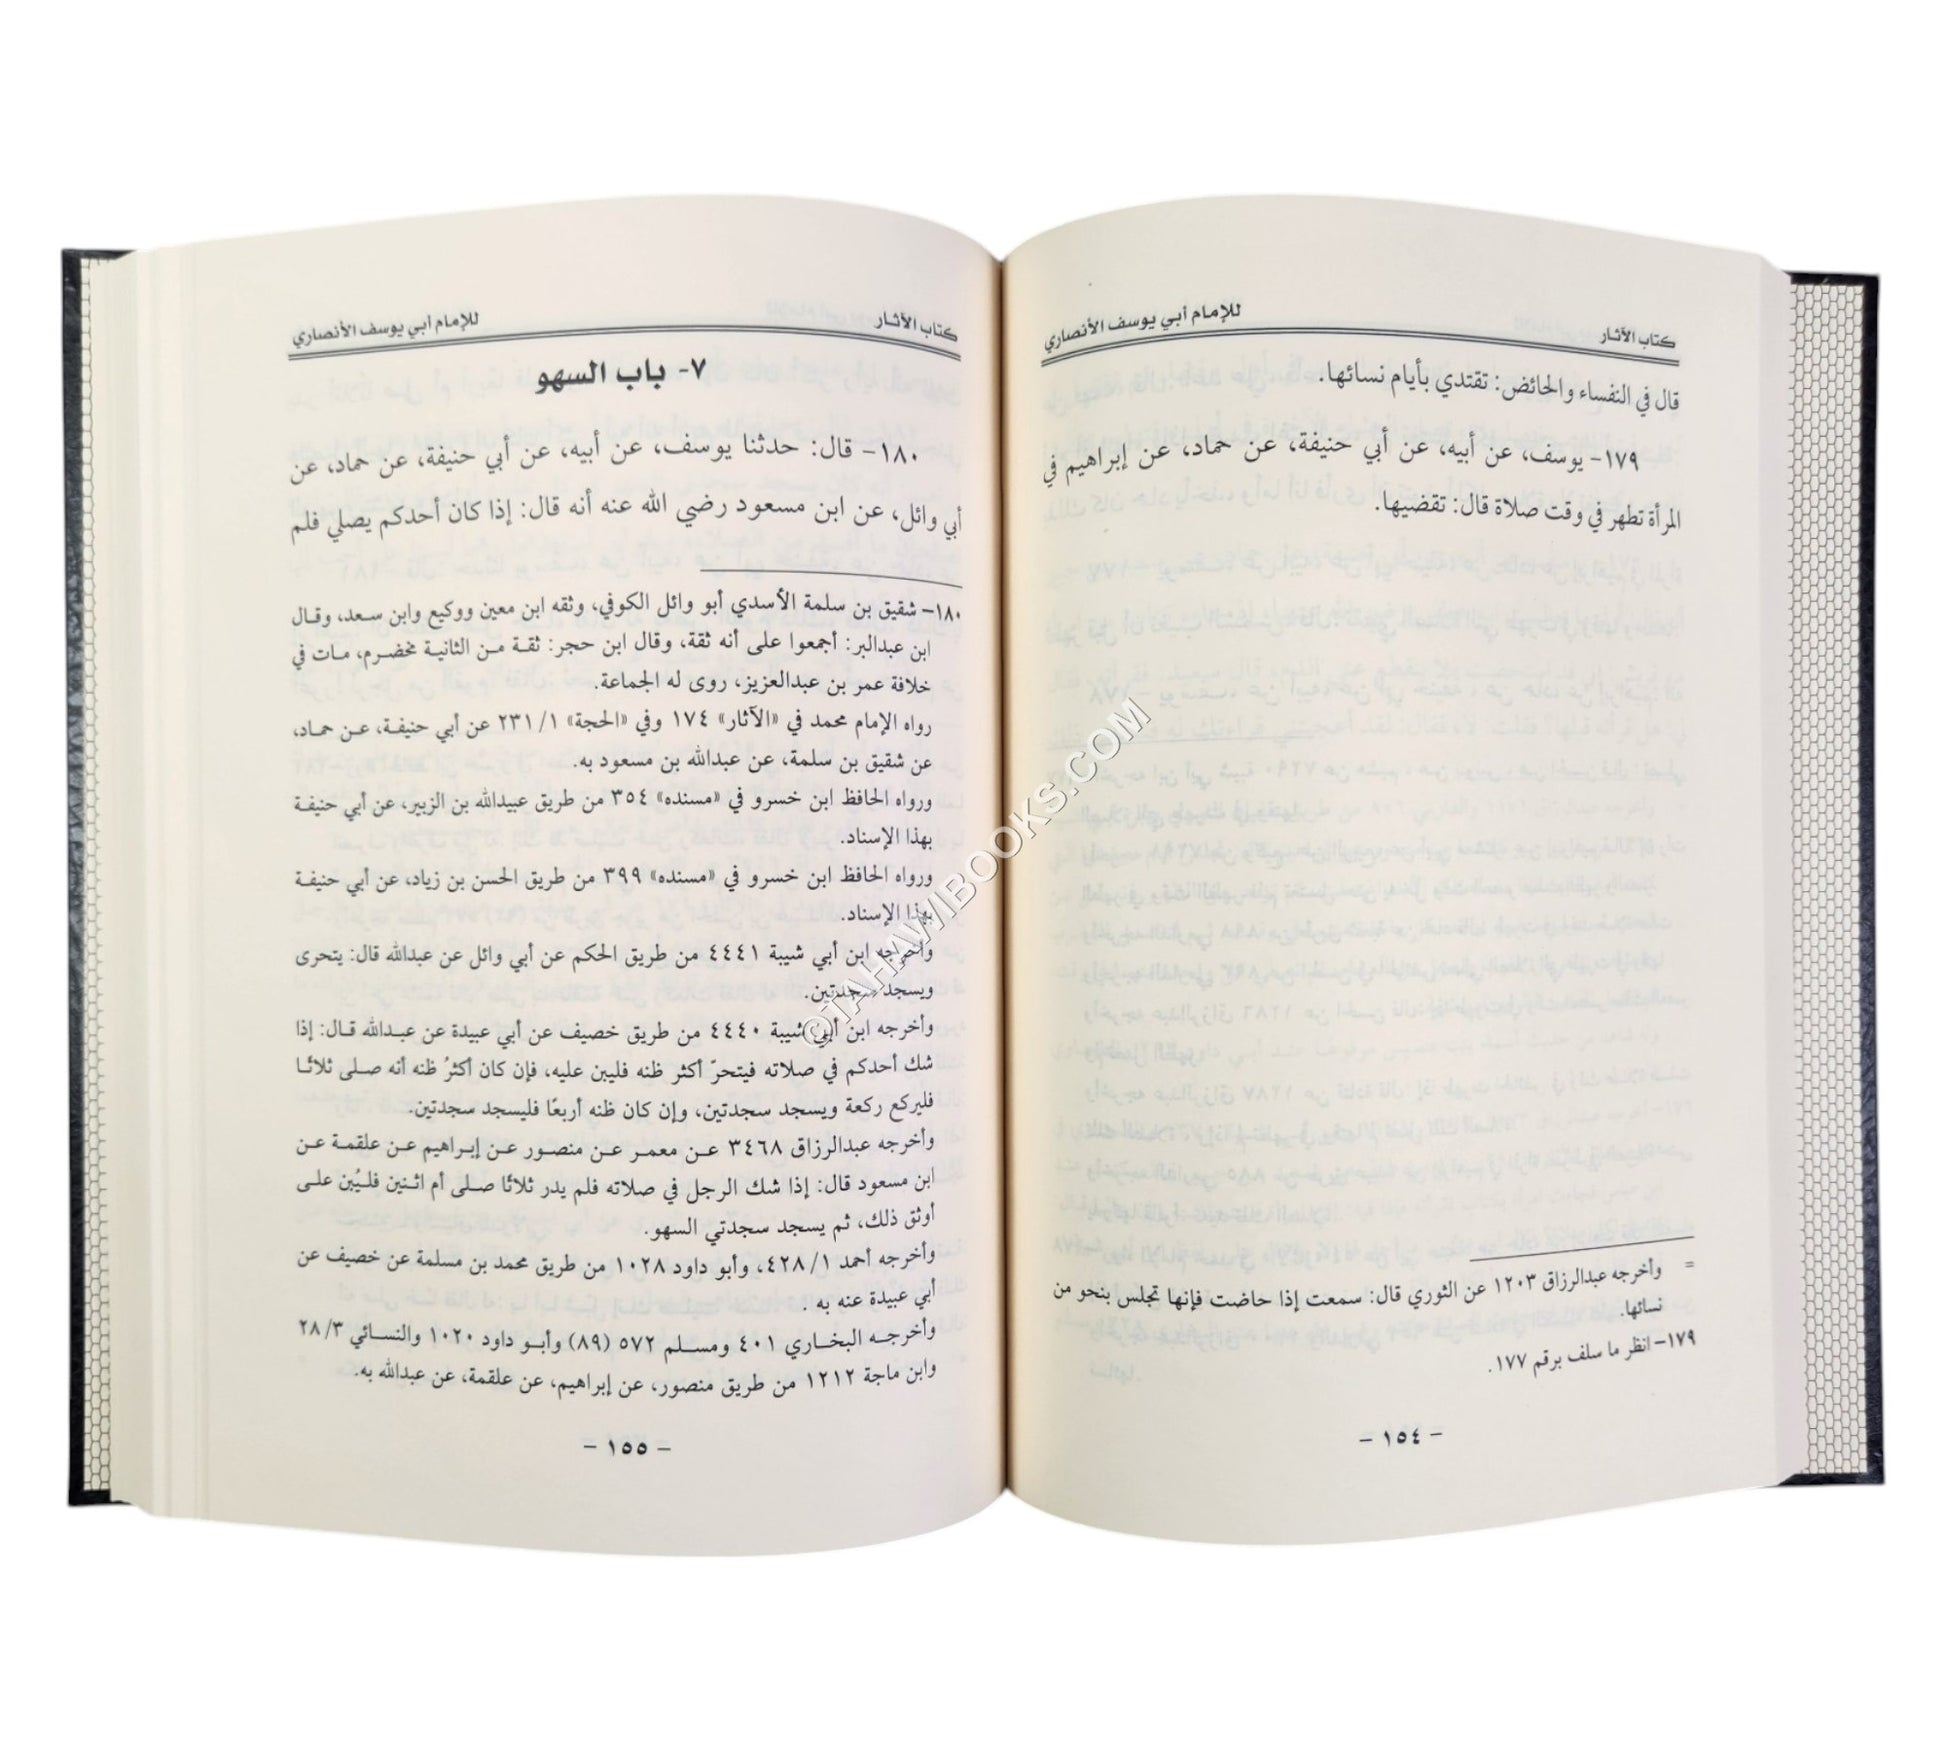 كتاب الآثار للإمام أبي يوسف الأنصاري
قال في النفساء والحائض: تقتدي بأيام نسائها.
١٧٩- يوسف، عن أبيه، عن أبي حنيفة، عن حماد، عن إبراهيم في
المرأة تطهر في وقت صلاة قال: تقضيها.
= وأخرجه عبدالرزاق ١٢٠٣ عن الثوري قال: سمعت إذا حاضت فإنها تجلس بنحو من
نسائها.
١٧٩- انظر ما سلف برقم ١٧٧.
- ١٥٤ -
كتاب الآثار للإمام أبي يوسف الأنصاري
٧- باب السهو
١٨٠- قال: حدثنا يوسف، عن أبيه، عن أبي حنيفة، عن حماد، عن
أبي وائل، عن ابن مسعود رضي الله عنه أنه قال: إذا كان أحدكم يصلي فلم
١٨٠- شقيق بن سلمة الأسدي أبو وائل الكوفي، وثقه ابن معين ووكيع وابن سعد، وقال
ابن عبدالبر: أجمعوا على أنه ثقة، وقال ابن حجر: ثقة من الثانية مخضرم، مات في
خلافة عمر بن عبدالعزيز، روى له الجماعة.
رواه الإمام محمد في «الآثار» ١٧٤ وفي «الحجة» ٢٣١/١ عن أبي حنيفة، عن حماد،
عن شقيق بن سلمة، عن عبدالله بن مسعود به.
ورواه الحافظ ابن خسرو في «مسنده» ٣٥٤ من طريق عبيدالله بن الزبير، عن أبي حنيفة
بهذا الإسناد.
ورواه الحافظ ابن خسرو في «مسنده» ٣٩٩ من طريق الحسن بن زياد، عن أبي حنيفة
بهذا الإسناد.
وأخرجه ابن أبي شيبة ٤٤٤١ من طريق الحكم عن أبي وائل عن عبدالله قال: يتحرى
ويسجد سجدتين.
وأخرجه ابن أبي شيبة ٤٤٤٠ من طريق خصيف عن أبي عبيدة عن عبدالله قال: إذا
شك أحدكم في صلاته فيتحرّ أكثر ظنه فليبن عليه، فإن كان أكثرُ ظنه أنه صلى ثلاثًا
فليركع ركعة ويسجد سجدتين، وإن كان ظنه أربعًا فليسجد سجدتين.
وأخرجه عبدالرزاق ٣٤٦٨ عن معمر عن منصور عن إبراهيم عن علقمة عن
ابن مسعود قال: إذا شك الرجل في صلاته فلم يدر ثلاثًا صلى أم اثنين فليُبن على
أوثق ذلك، ثم يسجد سجدتي السهو.
وأخرجه أحمد ٤٢٨/١، وأبو داود ١٠٢٨ من طريق محمد بن مسلمة عن خصيف عن
أبي عبيدة عنه به .
وأخرجه البخاري ٤٠١ ومسلم ٥٧٢ (٨٩) وأبو داود ١٠٢٠ والنسائي ٢٨/٣
وابن ماجة ١٢١٢ من طريق منصور، عن إبراهيم، عن علقمة، عن عبدالله به.
- ١٥٥ -
©TAHAWIBOOKS.COM